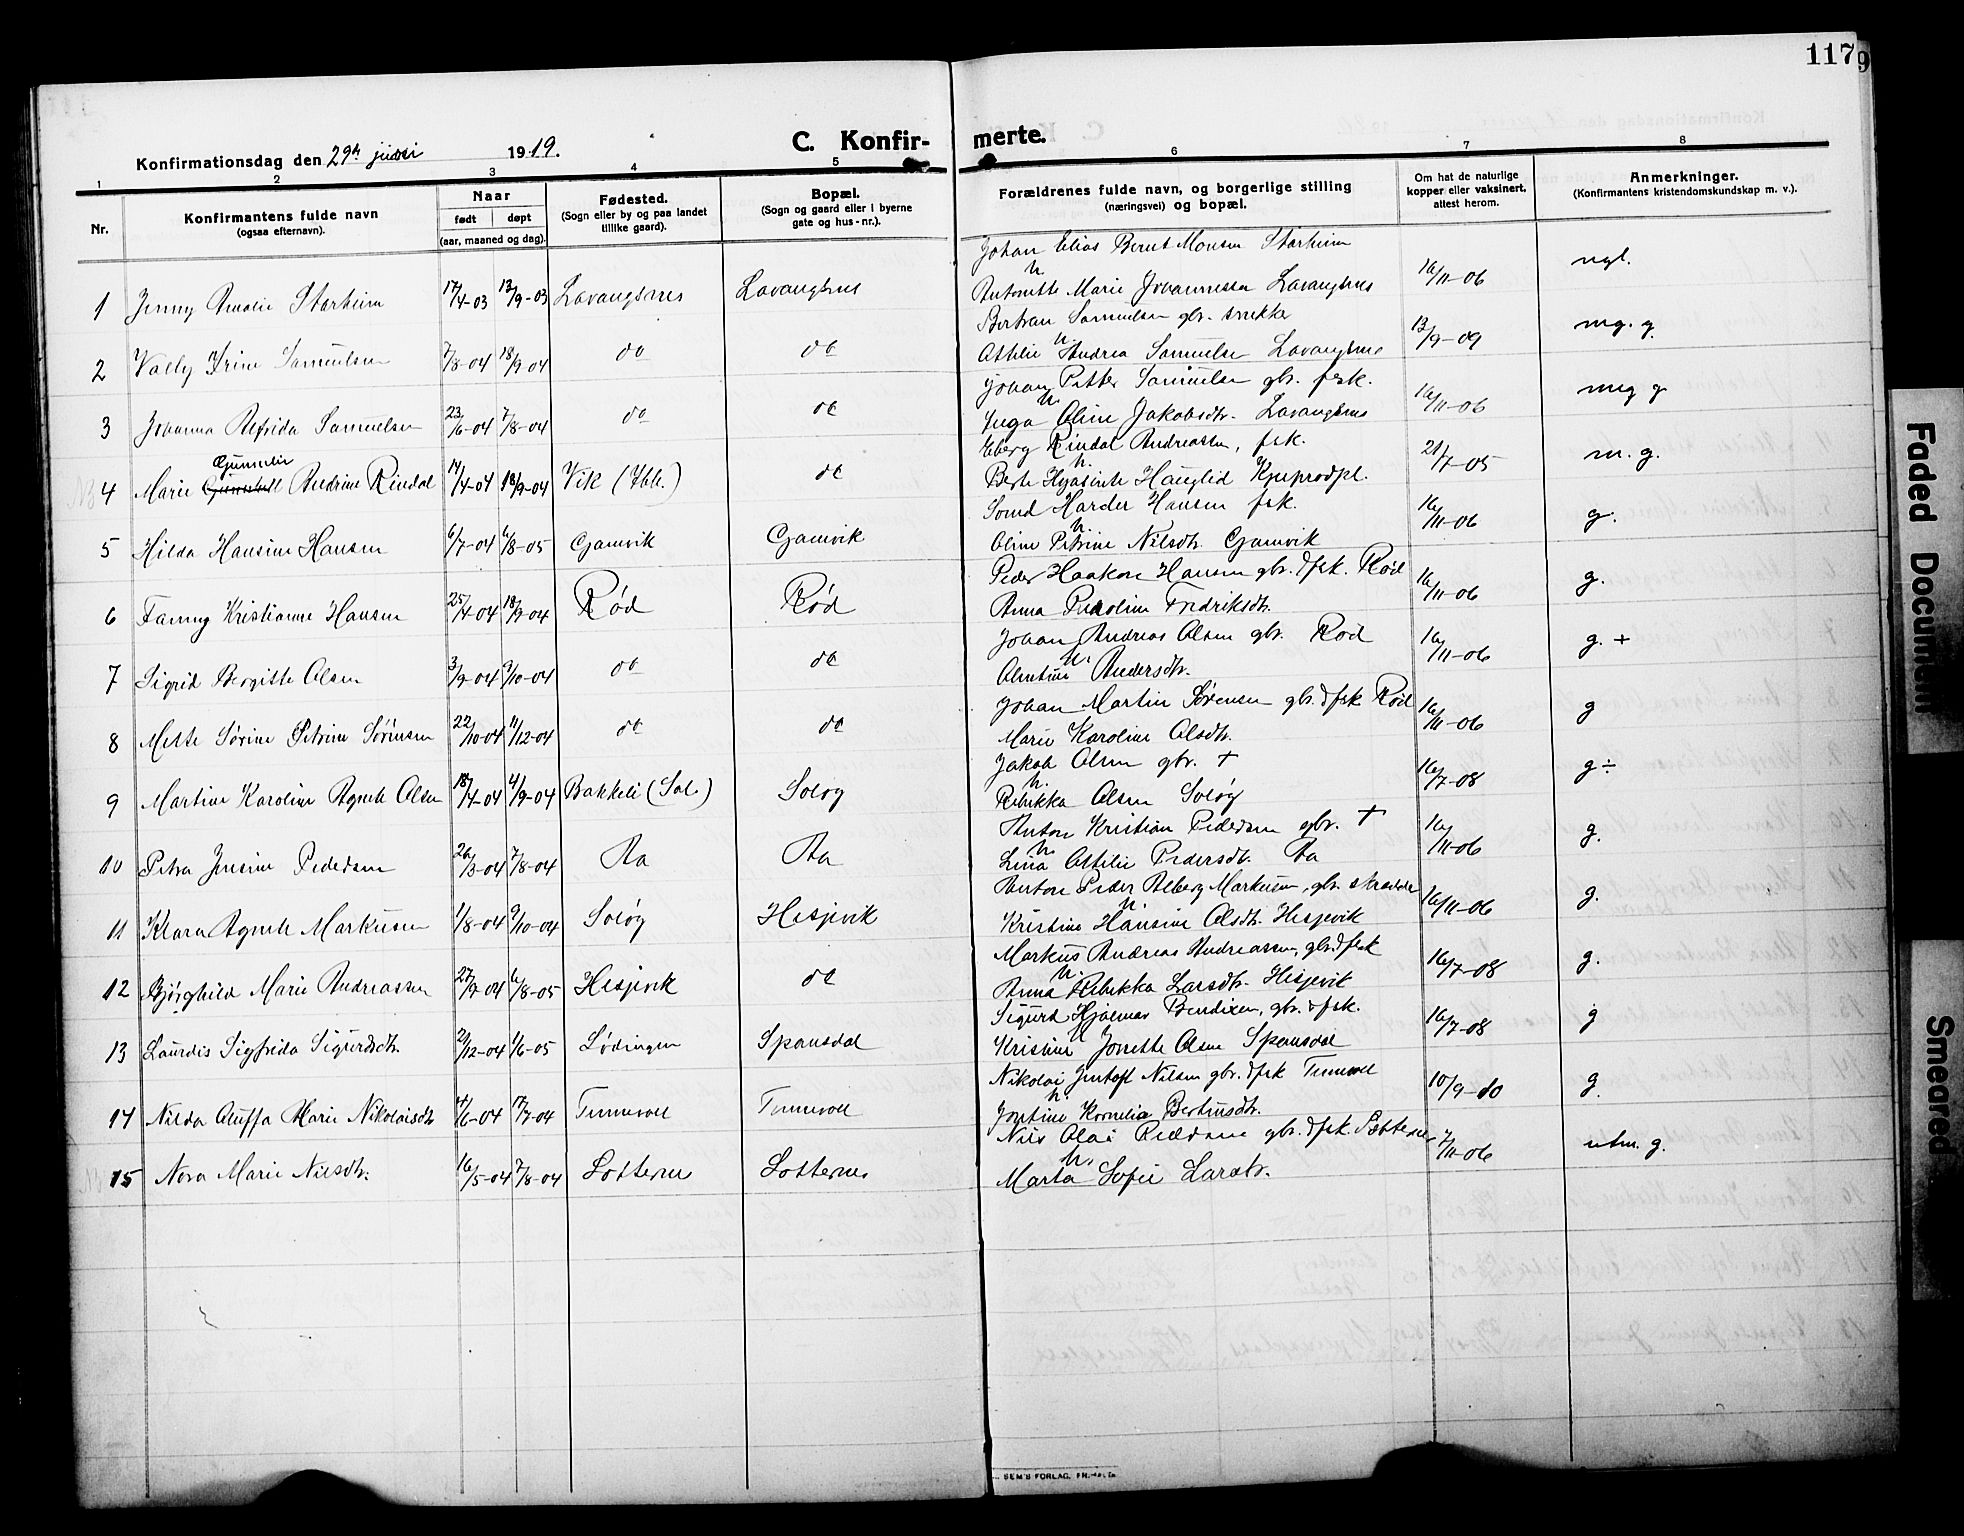 1179
C. Konfir-merte.
Konfirmationsdag den 29de juni 1919.
1 2 3 4 5 6 7 8
Nr.
Konfirmantens fulde navn
(ogsaa efternavn).
Naar
født døpt
(aar, maaned og dag).
Fødested.
(Sogn eller by og paa landet
tillike gaard).
Bopæl.
(Sogn og gaard eller i byerne
gate og hus-nr.).
Forældrenes fulde navn, og borgerlige stilling
(næringsvei) og bopæl.
Om hat de naturlige
kopper eller vaksinert,
attest herom.
Anmerkninger.
(Konfirmantens kristendomskundskap m. v.).
Johan Elias Bernt Monsen Storheim
1 Jenny Amalie Storheim 17/4-03 13/9-03 Lavangsnes Lavangsnes h. Antonette Marie Johannessen Lavangsnes 16/11-06 ngl.
Bertran Samuelsen gbr. snekker
2 Vally Irine Samuelsen 7/8-04 18/9-04 do do h. Othilie Andrea Samuelsen Lavangsnes 13/9-09 mg. g.
Johan Petter Samuelsen gbr. fisk.
3 Johanna Alfrida Samuelsen 23/6-04 7/8-04 do do h. Inga Oline Jakobsdtr. Lavangsnes 16/11-06 meg g
Eberg Rindal Andreassen, fsk.
4 Marie Gunnelie Andrine Rindal 14/4-04 18/9-04 Vik (Ibb.) do h. Berte Hyasinte Hauglid 21/7-05 m. g.
Harder Hansen fsk.
5 Hilda Hansine Hansen 6/7-04 6/8-05 Gamvik Gamvik h. Oline Petrine Nilsdtr. Gamvik 16/11-06 g.
Peder Haakon Hansen gbr. & fsk. Rød
6 Fanny Kristianne Hansen 25/4-04 18/9-04 Rød Rød Anna Fredriksdtr. 16/11-06 g.
Johan Andreas Olsen gbr. Rød
7 Sigrid Bergitte Olsen 3/9-04 9/10-04 do do h. Andersdtr. 16/11-06 g. +
Johan Martin Sørensen gbr. & fsk Rød
8 Mette Sørine Petrine Sørensen 22/10-04 11/12-04 do do Marie Karoline Olsdtr. 16/11-06 g
Jakob Olsen gbr. +
9 Martine Karoline Agnete Olsen 18/4-04 4/9-04 Bakkeli (Sal.) Soløy h. Rebekka Olsen Soløy 16/7-08 g ÷
Anton Kristian Pedersen gbr. +
10 Petra Jensine Pedersen 26/3-04 7/8-04 Aa Aa h. Lina Othilie Pedersdtr. Aa 16/11-06 g.
Anton Peder Alberg Markusen, gbr. skrædder
11 Klara Agnete Markusen 1/8-04 9/10-04 Soløy Hesjevik h. Kristine Hansine Olsdtr. Hesjevik 16/11-06 g.
Markus Andreas Andreassen, gbr. & fsk
12 Bjørghild Marie Andreassen 27/9-04 6/8-05 Hesjevik do h. Anna Rebekka Larsdtr. Hesjevik 16/7-08 g.
Sigurd Hjalmar Bendixen, gbr. & fsk.
13 Laurdis Sigfrida Sigurdsdtr. 21/12-04 1/6-05 Lødingen Spansdal h. Kristine Jonette Olsen Spansdal 16/7-08 g
Nikolai Jentoft Nilsen gbr. & fsk Tennevoll
14 Nilda Aluffa Marie Nikolaisdtr 4/6-04 17/7-04 Tennevoll Tennevoll h. Jentine Kornelie Bertinsdtr. 10/9-10 g.
Nils Olai Pedersen gbr. & fsk. Søtternes
15 Nora Marie Nilsdtr. 16/5-04 7/8-04 Sotternes Sotternes h. Marta Sofie Larsdtr. 7/11-06 utm. g.
SEM'S FORLAG, FR.HALD.
Faded Document
Smeared